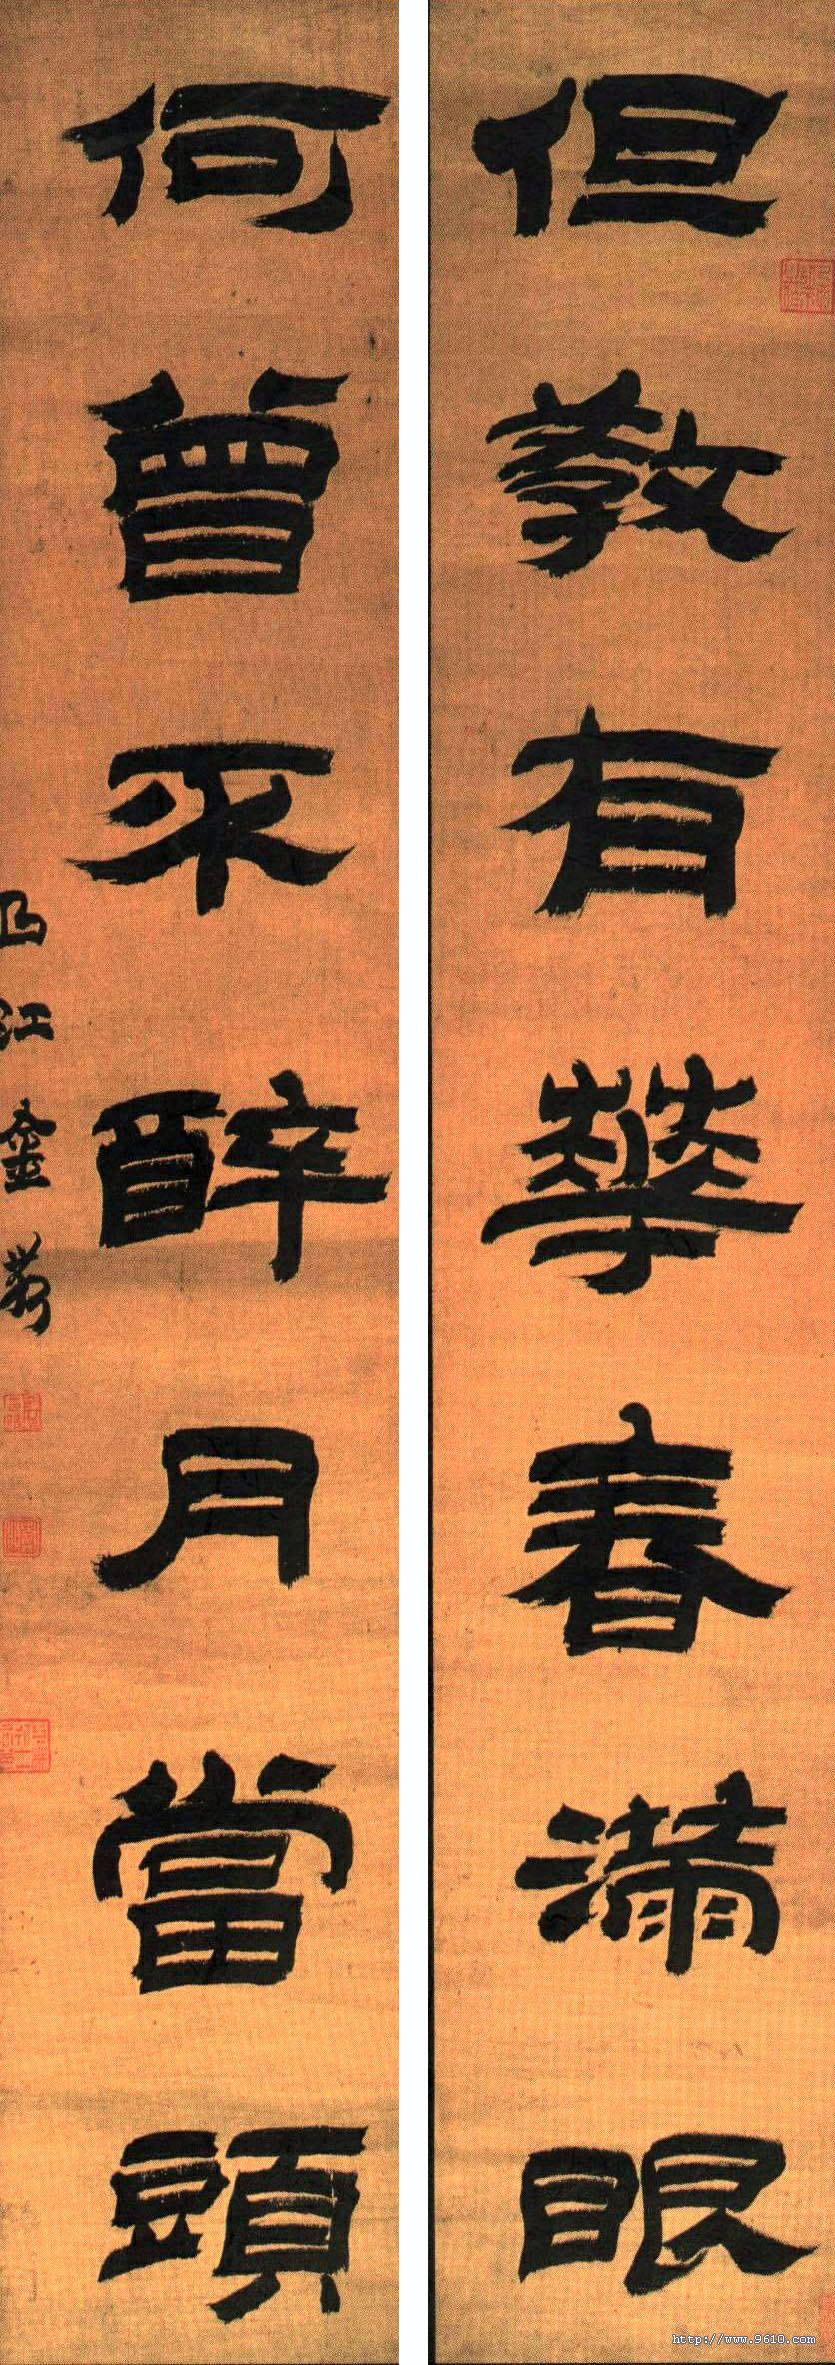 但教有華春滿眼
何曾不醉月當頭
曲江金農
http://www.9610.com